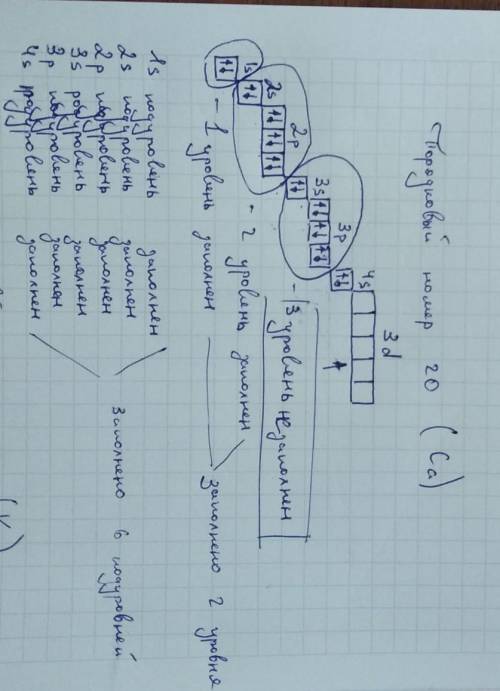 Порядковый номер 20 (Ca)
4s
3d
3s
3p
2s
2p
1s
- 3 уровень не заполнен
- 2 уровень заполнен
- 1 уровень заполнен
заполнено 2 уровня
1s подуровень заполнен
2s подуровень заполнен
2p подуровень заполнен
3s подуровень заполнен
3p подуровень заполнен
4s подуровень заполнен
заполнено 6 подуровней
(K)